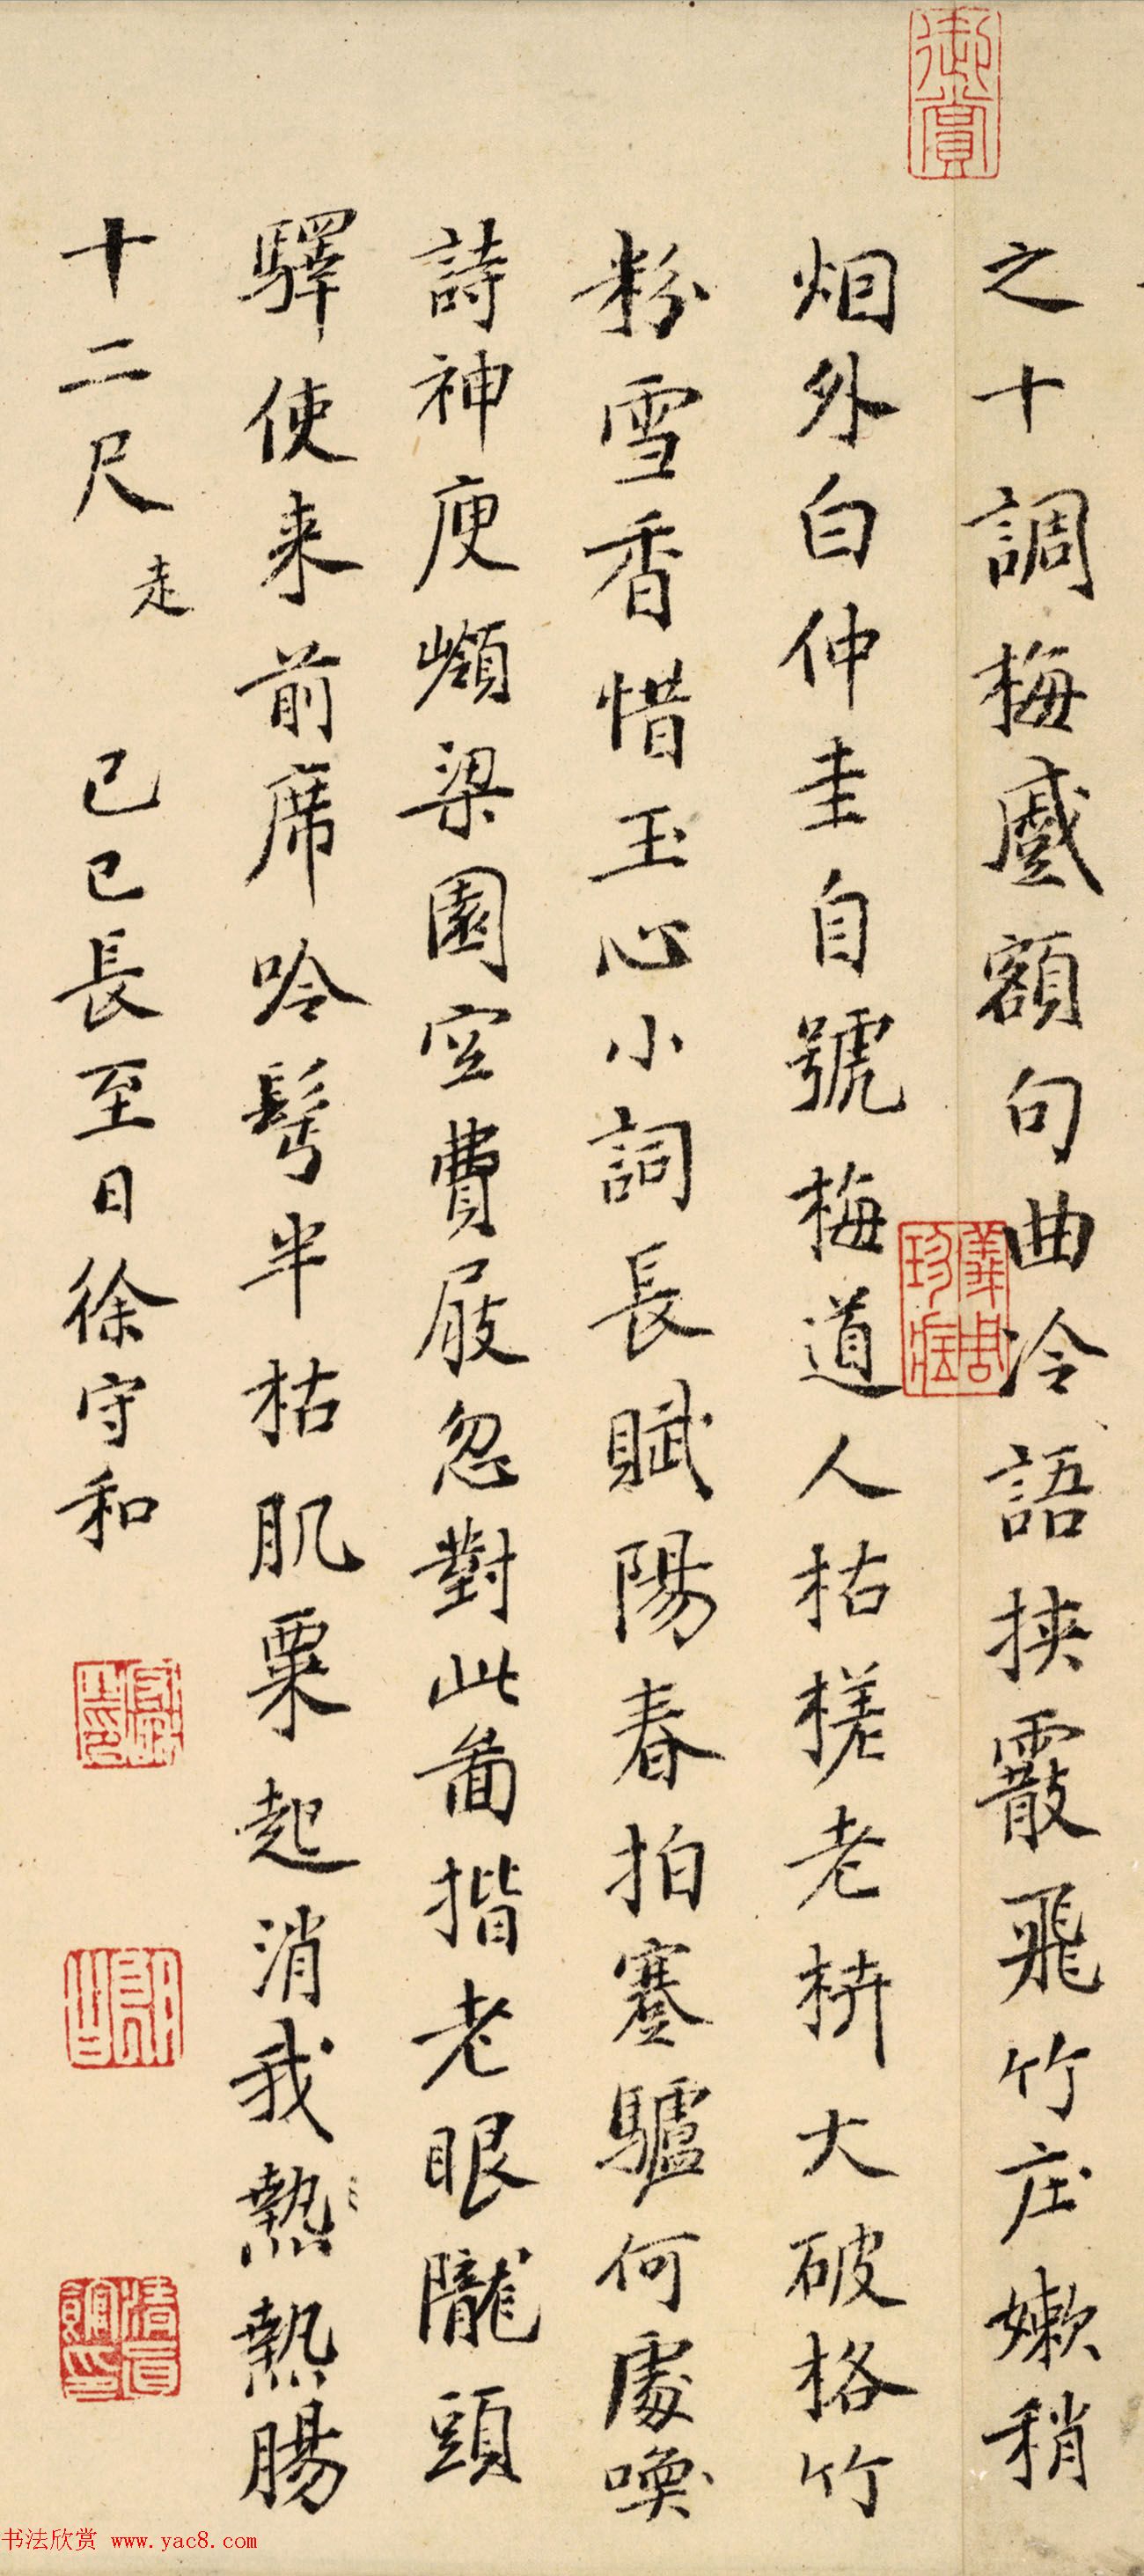 御賞
之十調梅感額句曲冷語挟霰飛竹庄嫰稍
烟外白仲圭自號梅道人枯槎老枿大破格竹
粉雪香惜玉心小詞長賦陽春拍蹇驢何處喚
詩神庾嶺梁園空費屐忽對此啚揩老眼隴頭
驛使来前席吟髩半枯肌粟起消我熱熱腸
十二尺 走 己巳長至日徐守和
书法欣赏 www.yac8.com